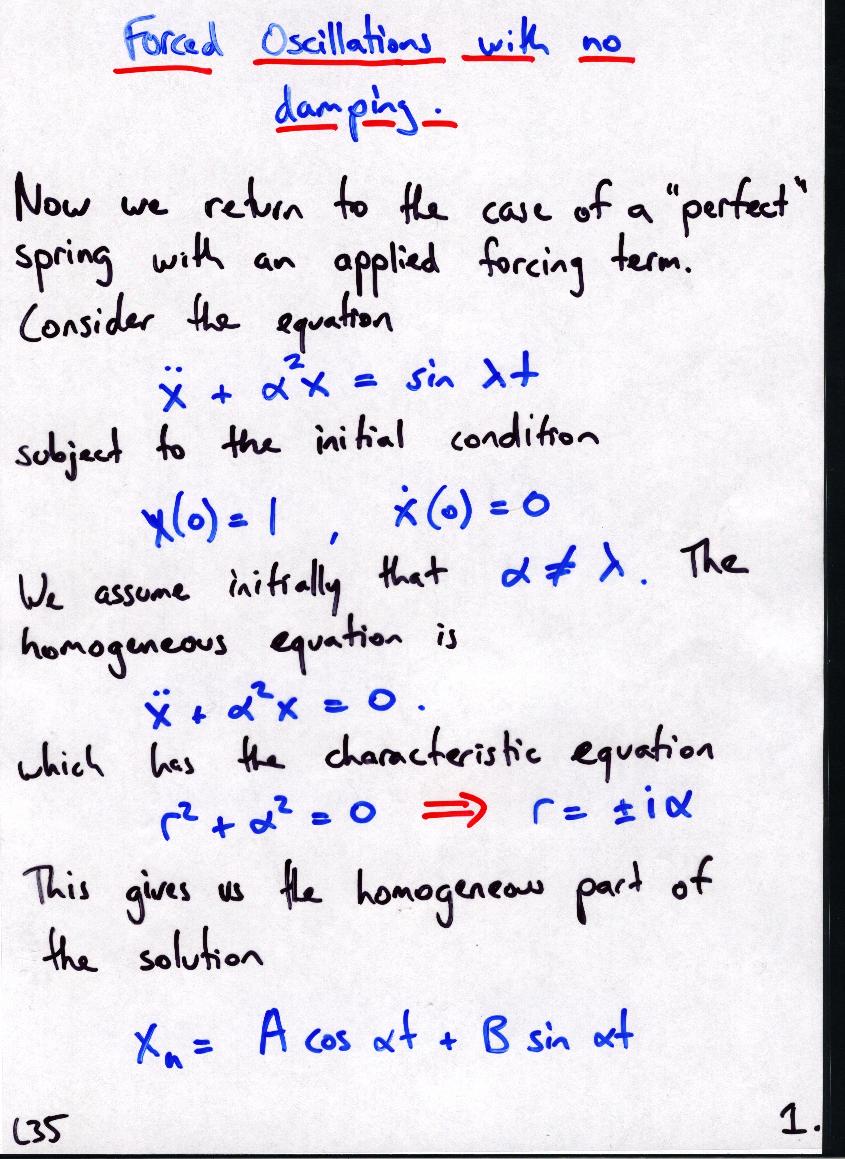 Forced Oscillations with no
damping.
Now we return to the case of a "perfect"
spring with an applied forcing term.
Consider the equation
ẍ + α²x = sin λt
subject to the initial condition
x(0) = 1 , ẋ(0) = 0
We assume initially that α ≠ λ. The
homogeneous equation is
ẍ + α²x = 0.
which has the characteristic equation
r² + α² = 0 ⟹ r = ± iα
This gives us the homogeneous part of
the solution
xₕ = A cos αt + B sin αt
L35 1.